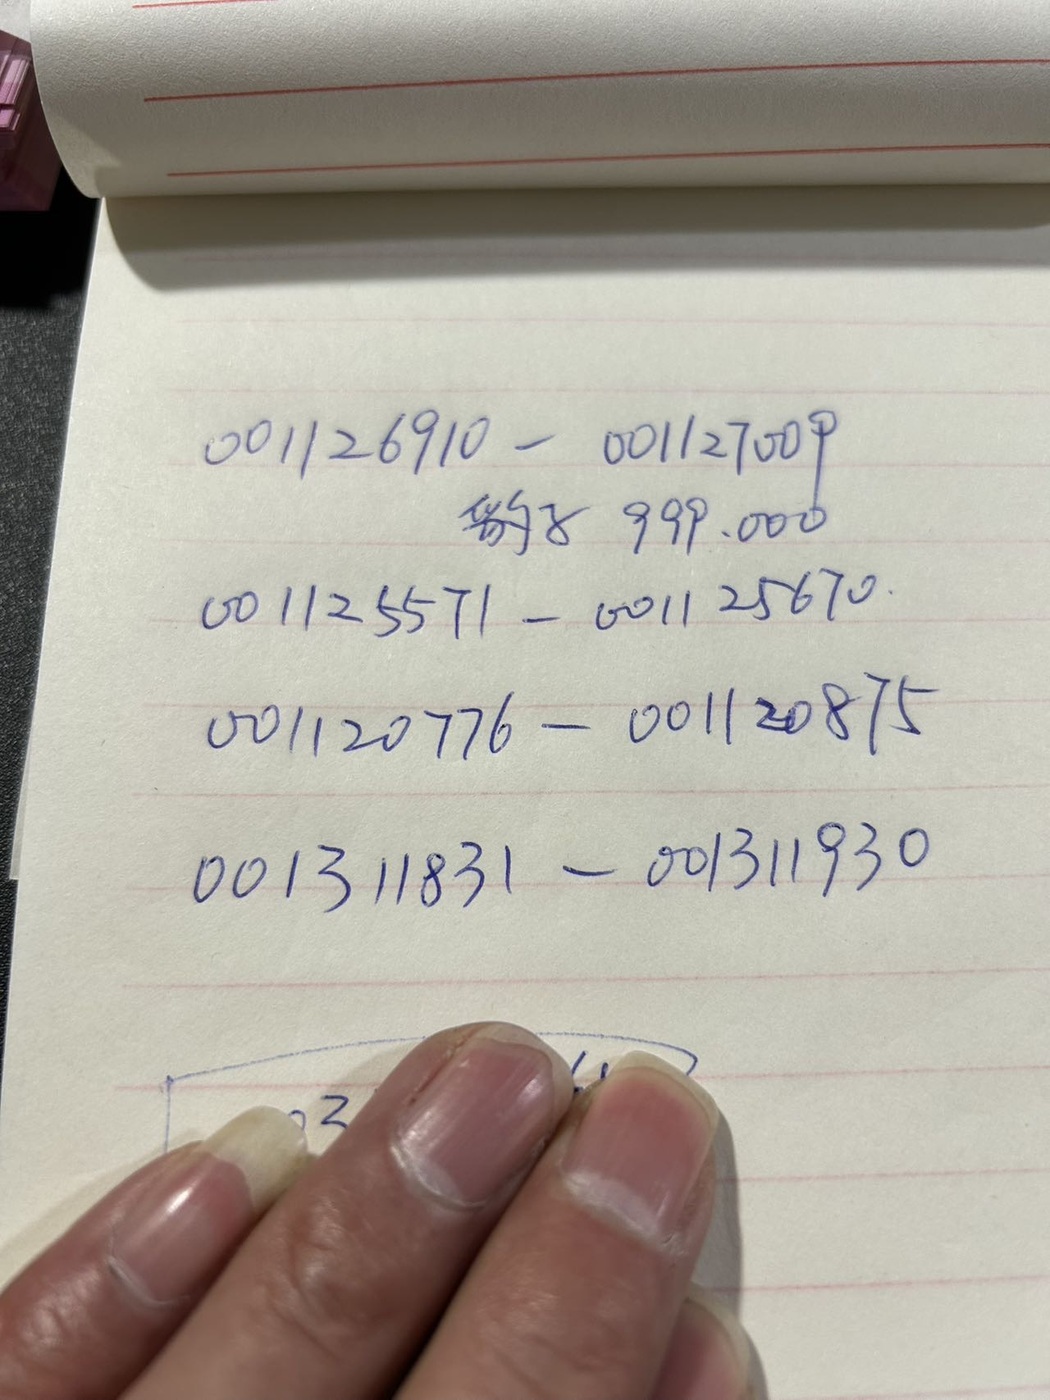 001126910 - 001127009
豹子 999.000
001125571 - 001125670.
001120776 - 001120875
001311831 - 001311930